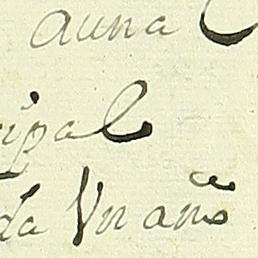 auna
cipal
da Vn año